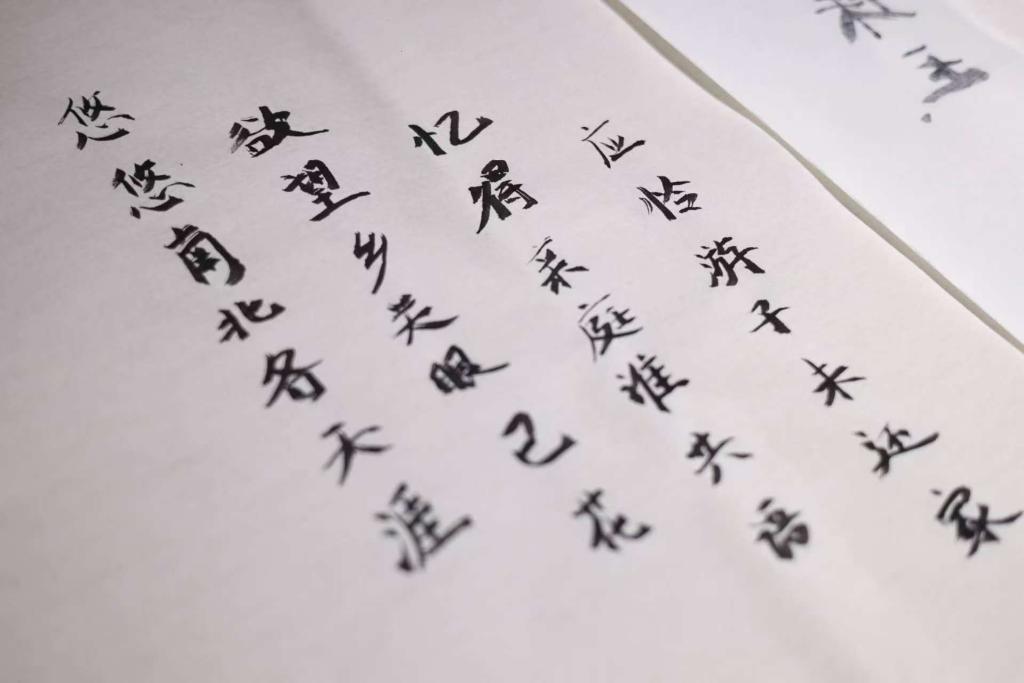 悠悠南北各天涯
欲望乡关眼已花
忆得亲庭谁共语
应怜游子未还家